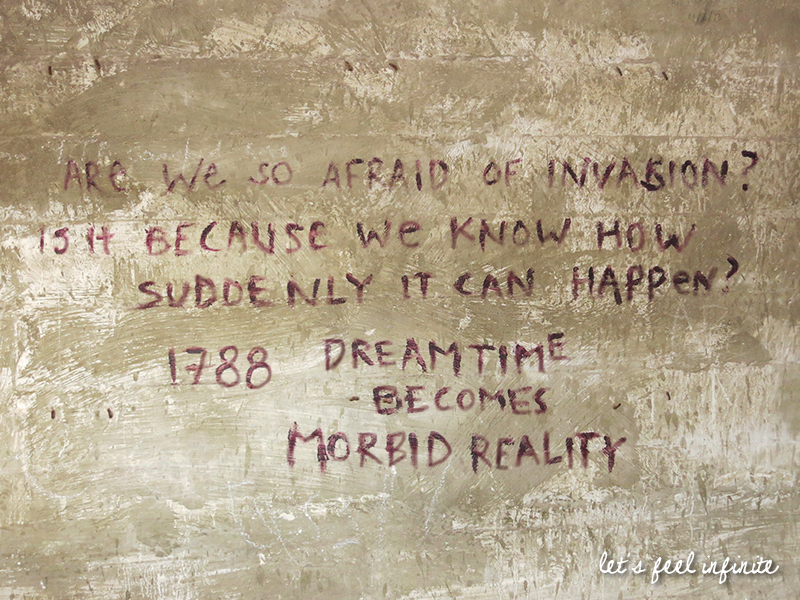 ARe We SO AFRAID OF INVASION?
IS It BECAUSE We KNOW HOW
SUDDENLY IT CAN HAPPeN?
1788 DREAMTIME
-BECOMES
MORBID REALITY
let's feel infinite